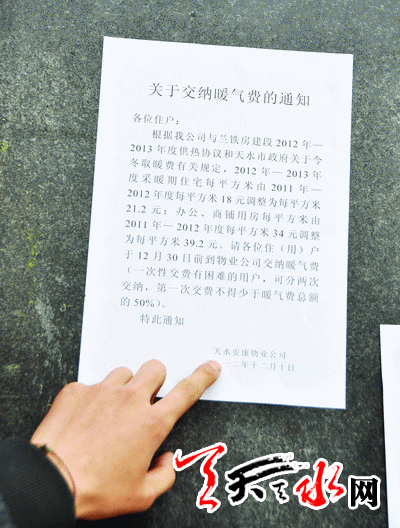 关于交纳暖气费的通知
各位住户：
根据我公司与兰铁房建段 2012 年—
2013 年度供热协议和天水市政府关于今
冬取暖费有关规定，2012 年—2013 年
度采暖期住宅每平方米由 2011 年—
2012 年度每平方米 18 元调整为每平方米
21.2 元；办公、商铺用房每平方米由
2011 年—2012 年度每平方米 34 元调整
为每平方米 39.2 元。请各位住（用）户
于 12 月 30 日前到物业公司交纳暖气费
（一次性交费有困难的用户，可分两次
交纳，第一次交费不得少于暖气费总额
的 50%）。
特此通知
天水安康物业公司
一二年十二月十日
天天天水网